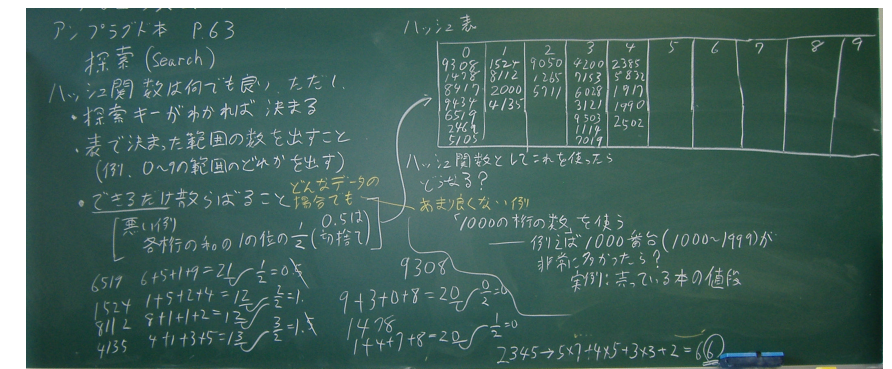 アンプラグド本 P.63
探索 (Search)
ハッシュ関数は何でも良い. ただし.
・探索キーがわかれば 決まる
・表で決まった範囲の数を出すこと
(例. 0~9の範囲のどれかを出す)
・できるだけ散らばること
どんなデータの
場合でも
悪い例
各桁の和の1の位の 1/2 (0.5は切捨て)
6519 6+5+1+9=21 1/2=0.5
1524 1+5+2+4=12 2/2=1.
8112 8+1+1+2=12
4135 4+1+3+5=13 3/2=1.5
ハッシュ表
0 1 2 3 4 5 6 7 8 9
9308 1524 9050 4200 2385
1478 8112 1265 7153 5832
8417 2000 5711 6028 1917
9434 4135 3121 1990
6519 9503 2502
2469 1114
5105 7019
ハッシュ関数としてこれを使ったら
どうなる?
あまり良くない例
「1000の桁の数」を使う
例えば1000番台(1000~1999)が
非常に多かったら?
実例: 売っている本の値段
9308
9+3+0+8=20 0/2=0
1478
1+4+7+8=20 1/2=0
2345→5×7+4×5+3×3+2=66